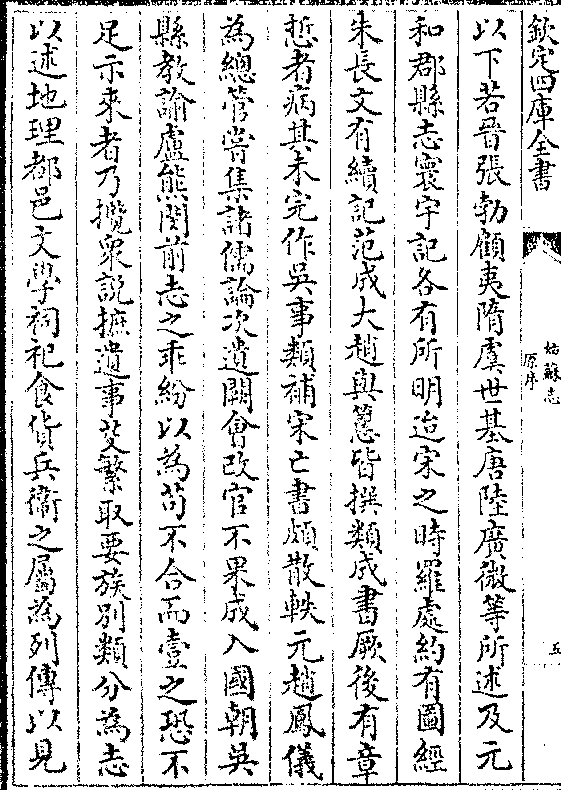 欽定四庫全書
姑蘇志
原序
五
以下若晉張勃顧夷隋虞世基唐陸廣微等所述及元
和郡縣志寰宇記各有所明迨宋之時羅處約有圖經
朱長文有續記范成大趙與𥲅皆撰類成書厥後有章
悊者病其未完作吳事類補宋亡書頗散軼元趙鳳儀
為總管嘗集諸儒論次遺闕會改官不果成入國朝吳
縣教諭盧熊閔前志之乖紛以為苟不合而壹之恐不
足示來者乃攬衆說摭遺事芟繁取要族別類分為志
以述地理都邑文學祠祀食貨兵衞之屬為列傳以見